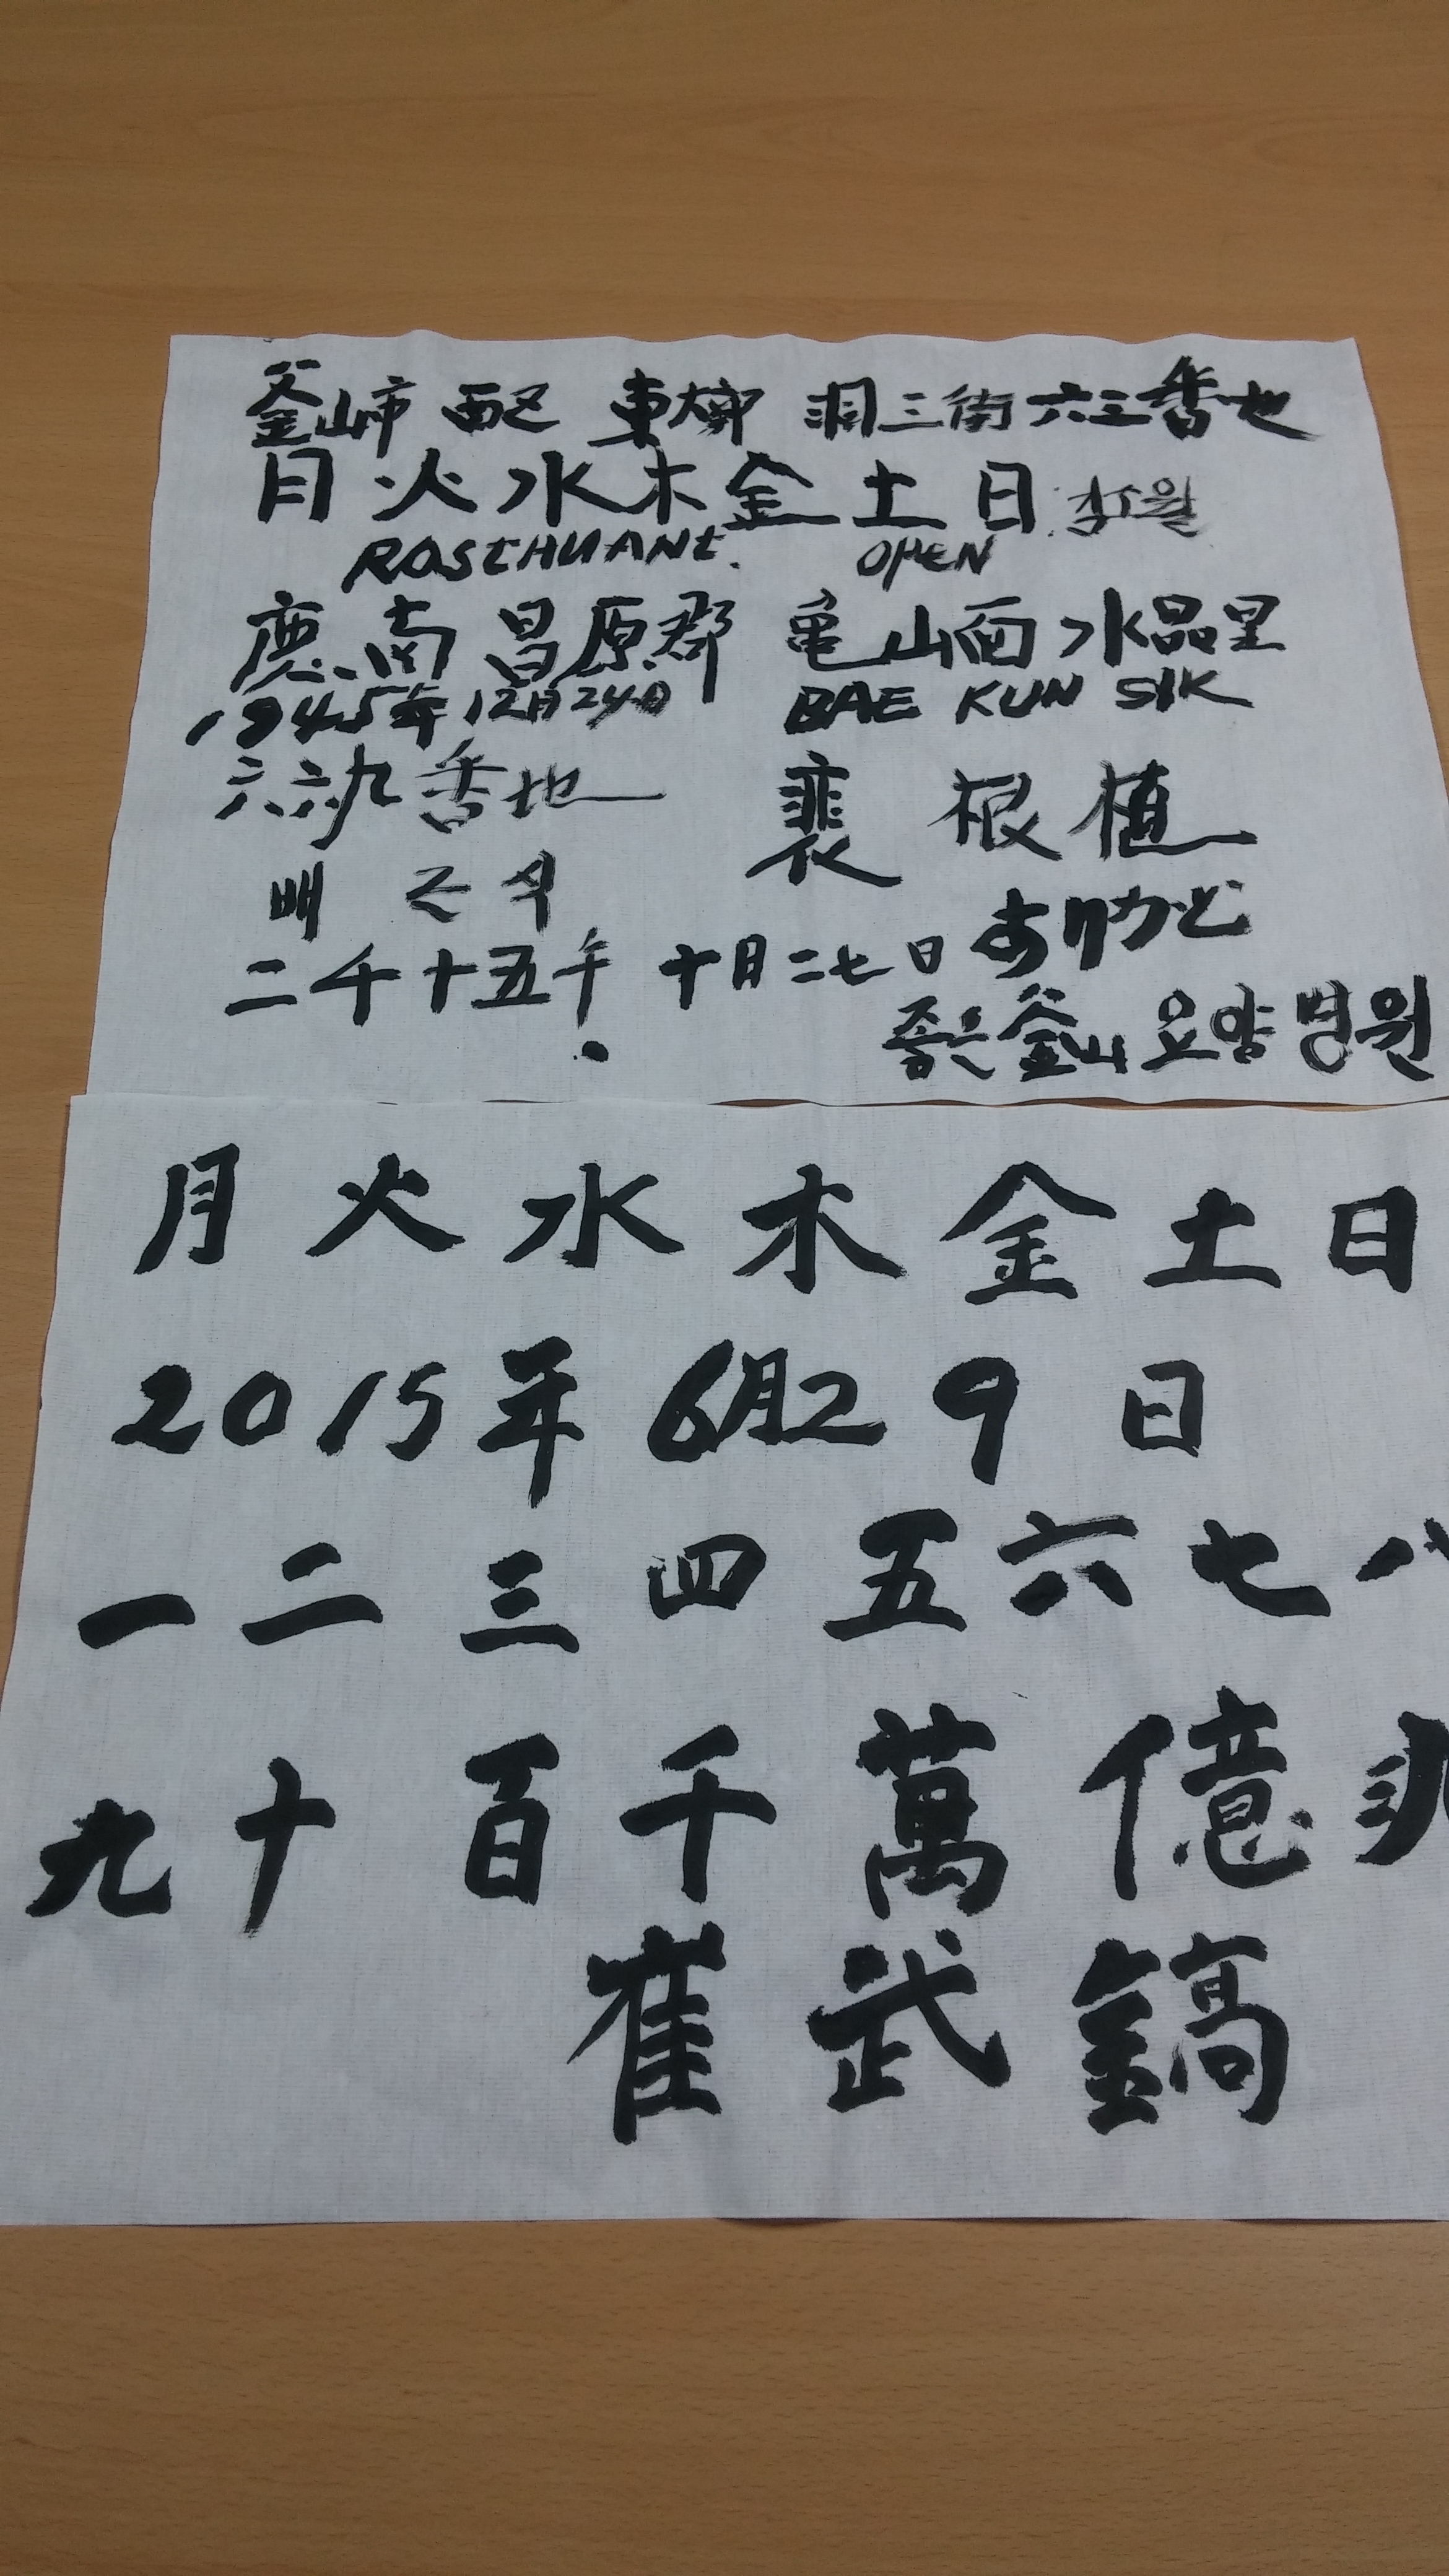 釜山市 西区 東大廓 洞三街 六三番地
月火水木金土日
ROSTHUANT. OPEN
慶南 昌原郡 亀山面 水品里
1945年12月24日 BAE KUN SIK
六六九番地 裵 根植
배 근식 ありがと
二千十五年 十月二七日
좋은釜山요양병원
月火水木金土日
2015年6月29日
一二三四五六七八
九十百千萬億兆
崔武鎬